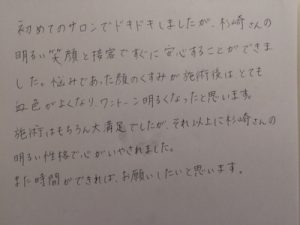 初めてのサロンでドキドキしましたが、杉崎さんの
明るい笑顔と接客ですぐに安心することができま
した。悩みであった顔のくすみが施術後は、とても
血色がよくなり、ワントーン明るくなったと思います。
施術はもちろん大満足でしたが、それ以上に杉崎さんの
明るい性格で心がいやされました。
また時間ができれば、お願いしたいと思います。